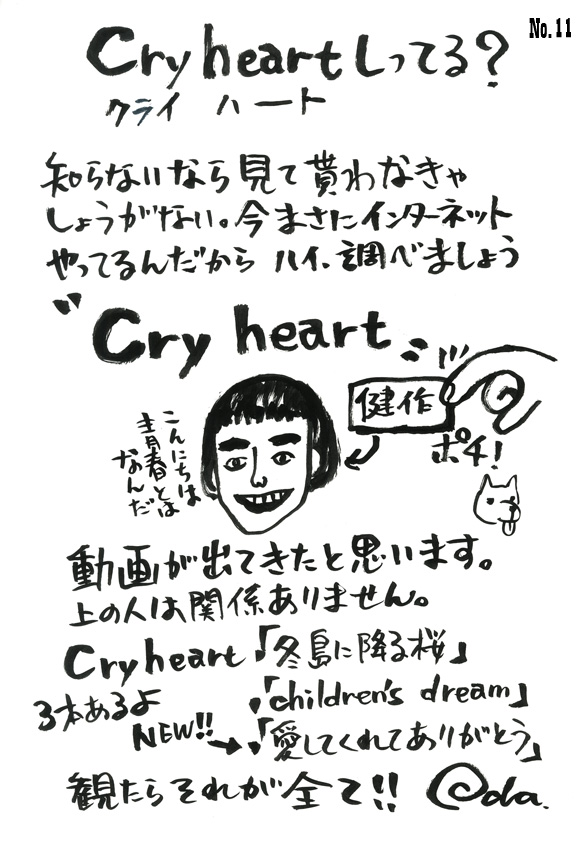 No.11
Cry heartしってる？
クライ ハート
知らないなら見て貰わなきゃ
しょうがない。今まさにインターネット
やってるんだから ハイ、調べましょう
〝Cry heart〟
健作
ポチ！
こんにちは
青春とは
なんだ
動画が出てきたと思います。
上の人は関係ありません。
Cry heart「冬島に降る桜」
3本あるよ
「children's dream」
NEW!! 「愛してくれてありがとう」
観たらそれが全て!! @da.